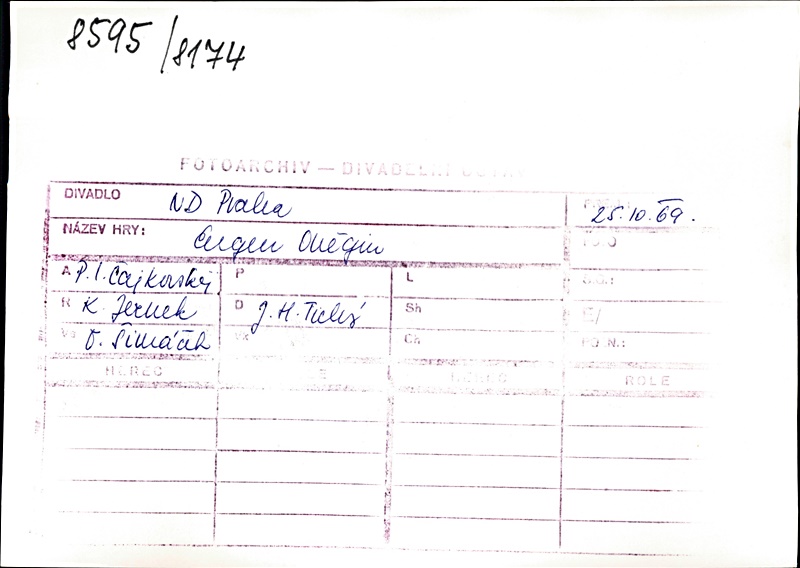 8595/8174
FOTOARCHIV — DIVADELNÍ
DIVADLO ND Praha 25.10.69.
NÁZEV HRY: Eugen Oněgin
A P. I. Čajkovský P L
R K. Jernek D J. H. Tichý Sh
O. Šimáček Ch
HEREC HEREC ROLE